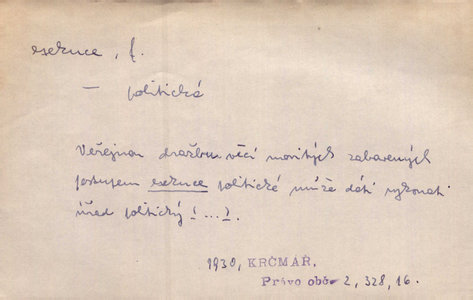 exekuce, f.
— politické
Veřejnou dražbu věcí movitých zabavených
postupem exekuce politické může dáti vykonati
úřad politický (...).
1930, KRČMÁŘ.
Právo obč. 2, 328, 16.